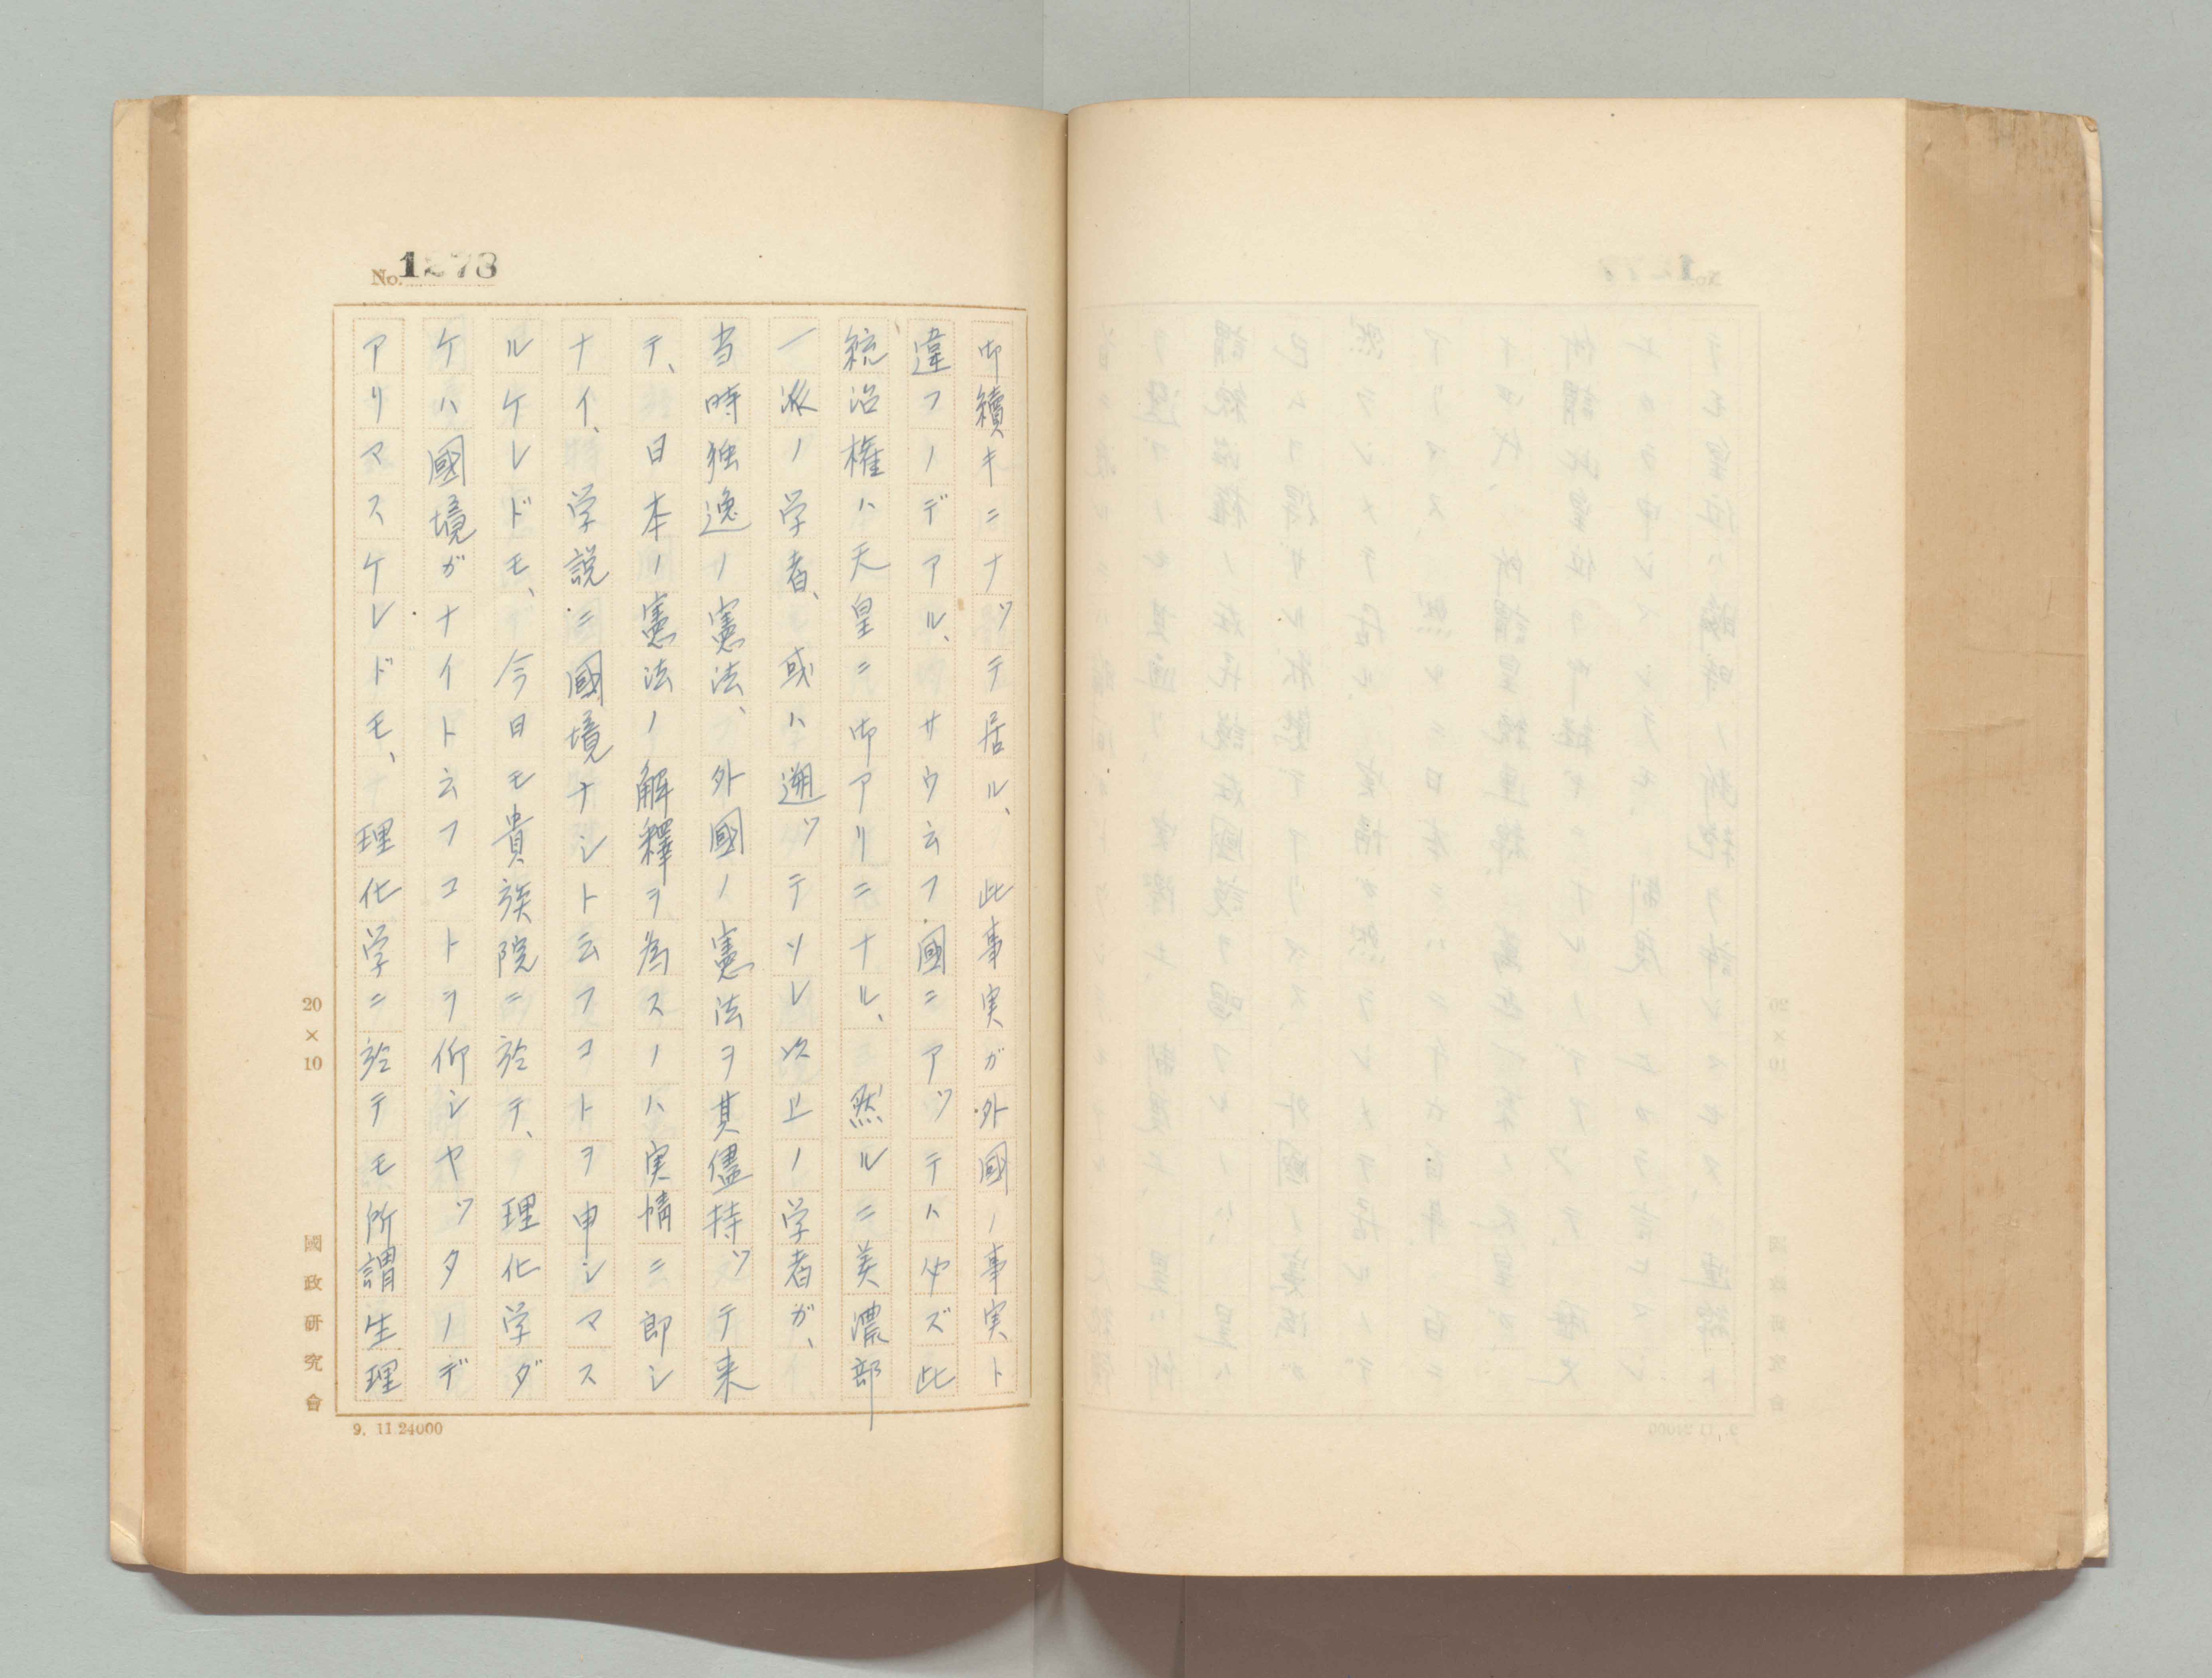 No. 1273
御續キニナツテ居ル、此事実ガ外國ノ事実ト
違フノデアル、サウ云フ國ニアツテハ必ズ此
統治権ハ天皇ニ御アリニナル、然ルニ美濃部
一派ノ学者、或ハ遡ツテソレ以上ノ学者ガ、
当時独逸ノ憲法、外國ノ憲法ヲ其儘持ツテ来
テ、日本ノ憲法ノ解釋ヲ為スノハ実情ニ即シ
ナイ、学説ニ國境ナシト云フコトヲ申シマス
ルケレドモ、今日モ貴族院ニ於テ、理化学ダ
ケハ國境ガナイト云フコトヲ仰シヤツタノデ
アリマスケレドモ、理化学ニ於テモ所謂生理
20×10
國政研究會
9. 11.24000